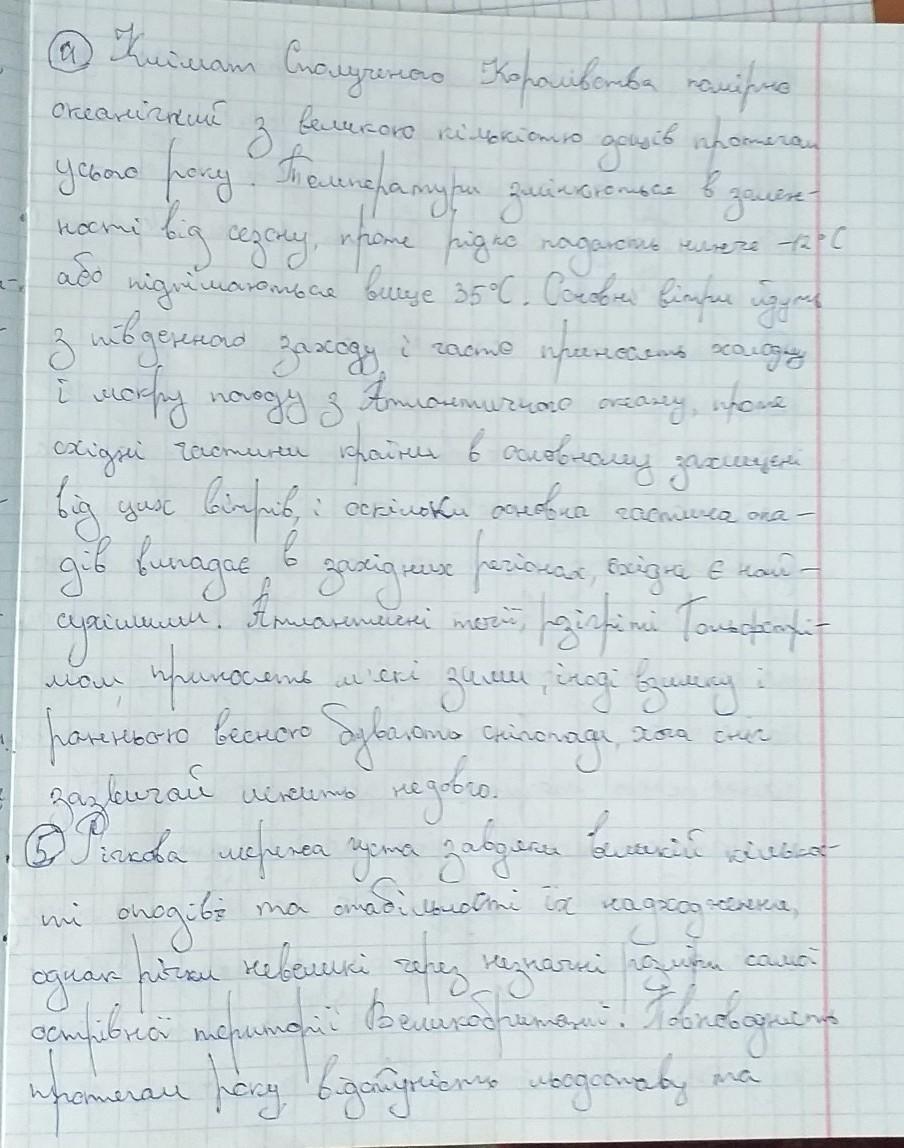 а) Клімат Сполученого Королівства помірно
океанічний з великою кількістю дощів протягом
усього року. Температури змінюються в залеж-
ності від сезону, проте рідко падають нижче -12°C
або піднімаються вище 35°C. Основні вітри йдуть
з південного заходу, і часто приносять холодну
і мокру погоду з Атлантичного океану, проте
східні частини країни в основному захищені
від цих вітрів, і оскільки основна частина опа-
дів випадає в західних регіонах, східні є най-
сухішими. Атлантичні течії, розігріті Гольфстрі-
мом, приносять м'які зими, іноді взимку і
ранньою весною бувають снігопади, хоча сніг
зазвичай лежить недовго.
б) Річкова мережа густа завдяки великій кілько-
ті опадів та стабільності їх надходження,
однак річки невеликі через незначні розміри самої
острівної території Великобританії. Повноводність
протягом року, відсутністю льодоставу та